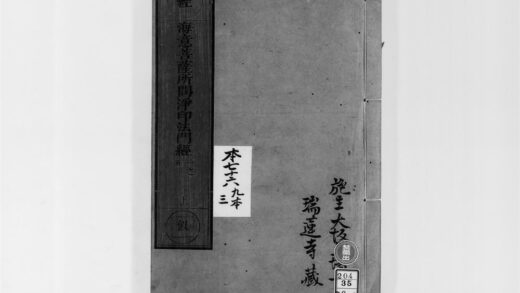 海意菩薩所問淨印法門經
本七十六
九本
三
施主大坂
瑞蓮寺藏
禁帶出
204
35